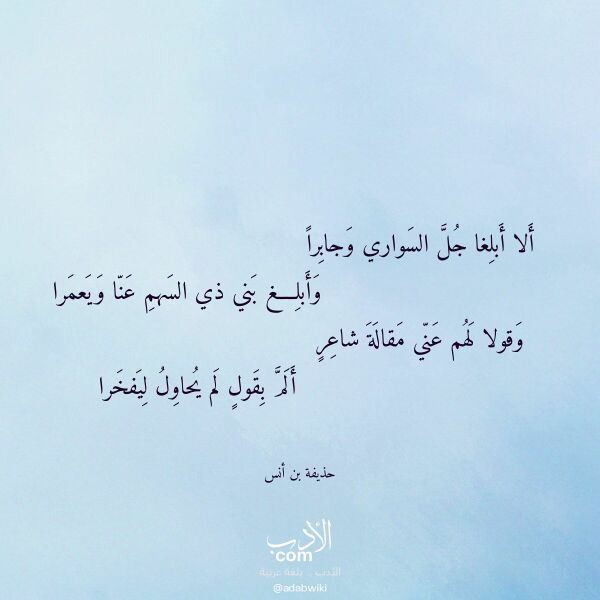 أَلا أَبلِغا جُلَّ السَواري وَجابِراً
وَأَبلِـــغ بَني ذي السَهمِ عَنّا وَيَعمَرا
وَقولا لَهُم عَنّي مَقالَةَ شاعِرٍ
أَلَمَّ بِقَولٍ لَم يُحاوِلُ لِيَفخَرا
حذيفة بن أنس
الأدب
com
الأدب .. بلغة عربية
@adabwiki